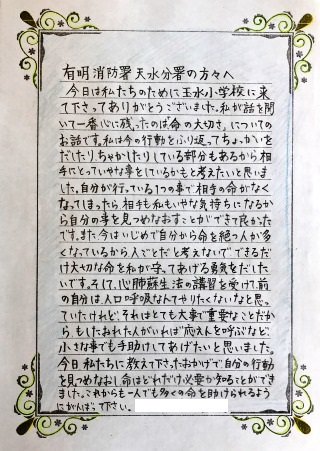 有明消防署 天水分署の方々へ
今日は私たちのために玉水小学校に来
て下さってありがとうございました。私が話を聞
いて一番心に残ったのは"命の大切さ"についての
お話です。私は今の行動をふり返ってちょっかいを
だしたり、ちゃかしたりしている部分もあるから相
手にとっていやな事をしているかもと考えたいと思いま
した。自分が行っている1つの事で相手の命がなくな
なってしまったら相手も私もいやな気持ちになるか
ら自分の事を見つめなおすことができて良かった
です。また今はいじめで自分から命を絶つ人が多く
なっているから人ごとだと考えないでできるだ
け大切な命を私が守ってあげる勇気をだした
いです。そして、心肺蘇生法の講習を受けて、前
の自分は、人口呼吸なんてやりたくないなと思っ
ていたけれど、それはとても大事で重要なことだか
ら、もしたおれた人がいれば応えんを呼ぶなど、
小さな事でも手助けしてあげたいと思いました。
今日、私たちに教えて下さったおかげで、自分の行動
を見つめなおし命はどれだけ必要か知ることができ
ました。これからも一人でも多くの命を助けられるよう
にがんばって下さい。